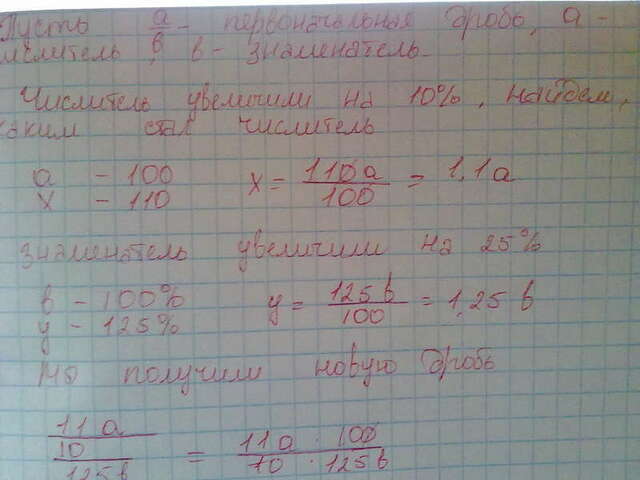 Пусть a/в - первоначальная дробь, a -
ислитель, в - знаменатель.
Числитель увеличили на 10%, найдем,
каким стал числитель
a - 100 x = 110a/100 = 1,1a
x - 110
знаменатель увеличили на 25%
в - 100% y = 125в/100 = 1,25 в
y - 125%
Мы получили новую дробь
11a/10 / 125в = 11a · 100 / 10 · 125в